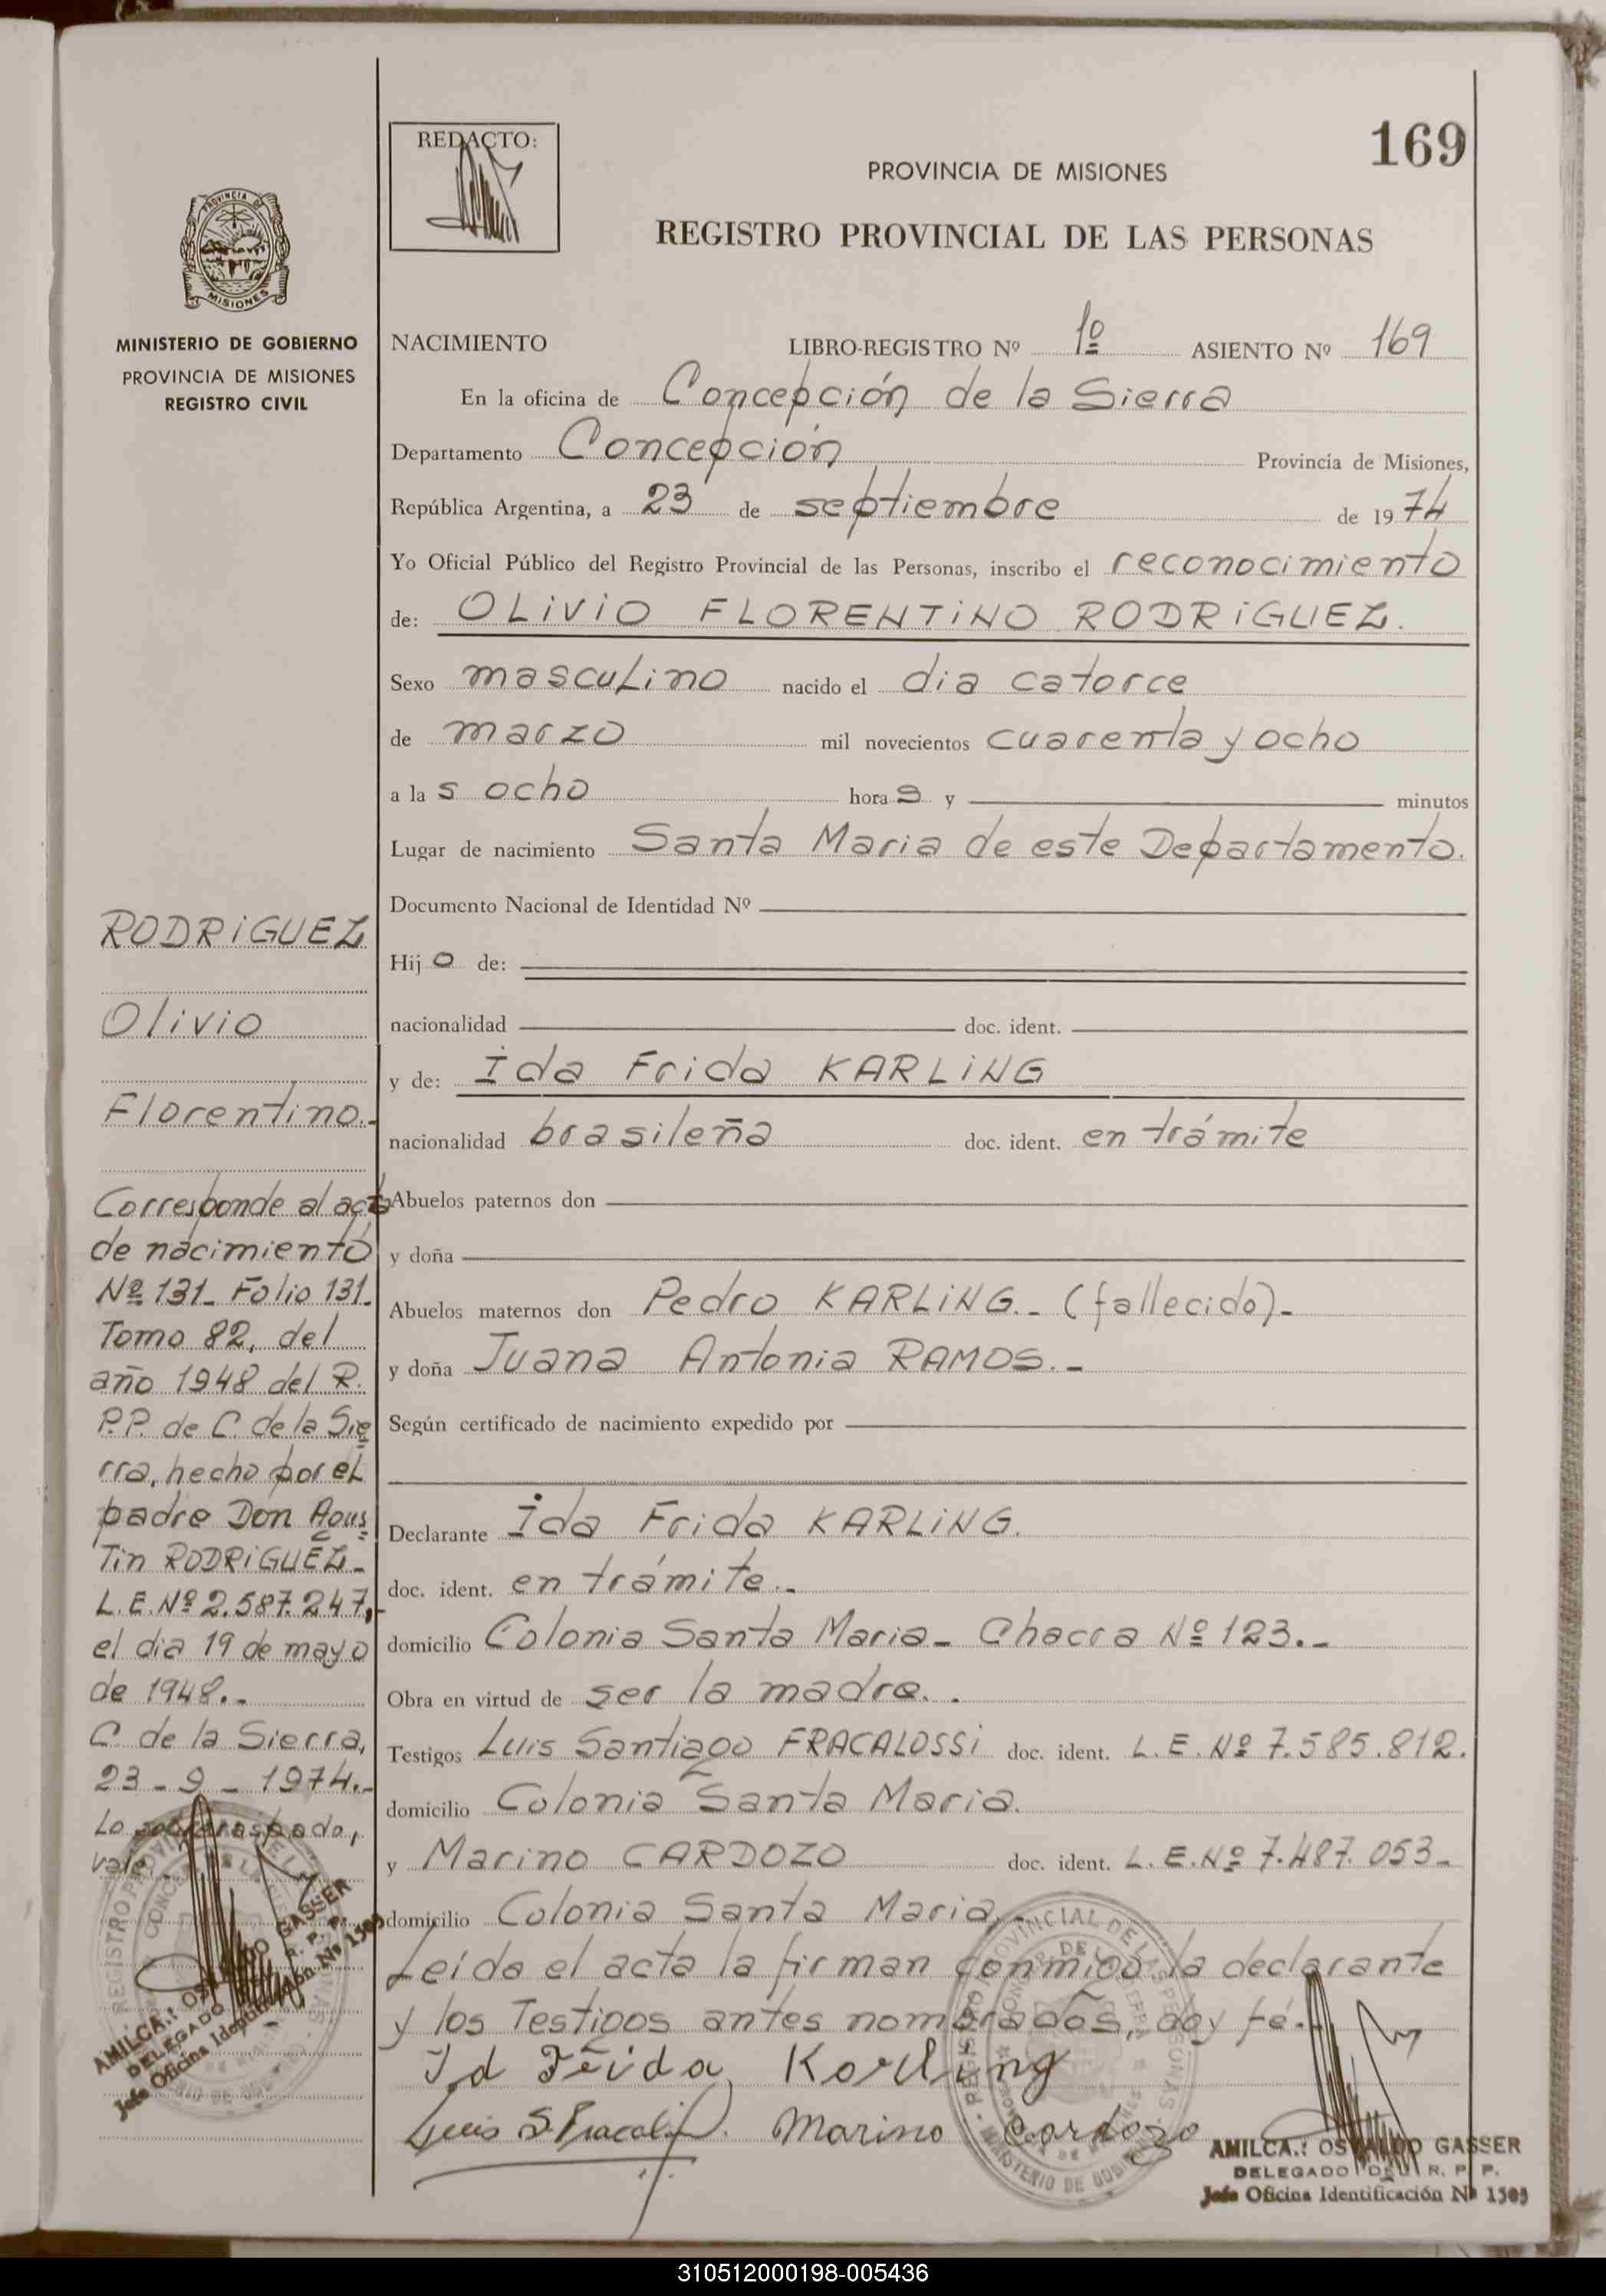 169
REDACTO:
PROVINCIA DE MISIONES
REGISTRO PROVINCIAL DE LAS PERSONAS
PROVINCIA DE
MISIONES
MINISTERIO DE GOBIERNO
PROVINCIA DE MISIONES
REGISTRO CIVIL
NACIMIENTO LIBRO-REGISTRO Nº 1º ASIENTO Nº 169
En la oficina de Concepción de la Sierra
Departamento Concepción Provincia de Misiones,
República Argentina, a 23 de septiembre de 1974
Yo Oficial Público del Registro Provincial de las Personas, inscribo el reconocimiento
de: OLiViO FLORENTiNO RODRiGUEZ.
Sexo masculino nacido el dia catorce
de marzo mil novecientos cuarenta y ocho
a las ocho horas y minutos
Lugar de nacimiento Santa Maria de este Departamento.
Documento Nacional de Identidad Nº
Hijo de:
nacionalidad doc. ident.
y de: Ida Frida KARLiNG
nacionalidad brasileña doc. ident. en trámite
Abuelos paternos don
y doña
Abuelos maternos don Pedro KARLiNG.- (fallecido)-
y doña Juana Antonia RAMOS.-
Según certificado de nacimiento expedido por
Declarante Ida Frida KARLiNG.
doc. ident. en trámite.-
domicilio Colonia Santa Maria- Chacra Nº 123.-
Obra en virtud de ser la madre. .
Testigos Luis Santiago FRACALOSSi doc. ident. L.E.Nº 7.585.812.
domicilio Colonia Santa Maria.
y Marino CARDOZO doc. ident. L.E.Nº 7.487.053-
domicilio Colonia Santa Maria,-
Leida el acta la firman conmigo la declarante
y los Testigos antes nombrados, doy fé.-
Id Frida Korling
Luis S. Fracalossi Marino Cardozo
AMILCAR OSVALDO GASSER
DELEGADO DEL R. P. P.
Jefe Oficina Identificación Nº 1505
RODRiGUEZ
Olivio
Florentino.-
Corresponde al acta
de nacimiento
Nº 131- Folio 131-
Tomo 82, del
año 1948 del R.
P.P. de C. de la Sie
rra, hecho por el
padre Don Agus
Tin RODRiGUEZ-
L.E.Nº 2.587.247,-
el dia 19 de mayo
de 1948.-
C. de la Sierra,
23-9-1974.-
Lo sobreraspado,
vale.
AMILCAR OSVALDO GASSER
DELEGADO DEL R. P. P.
Jefe Oficina Identificación Nº 1505
310512000198-005436